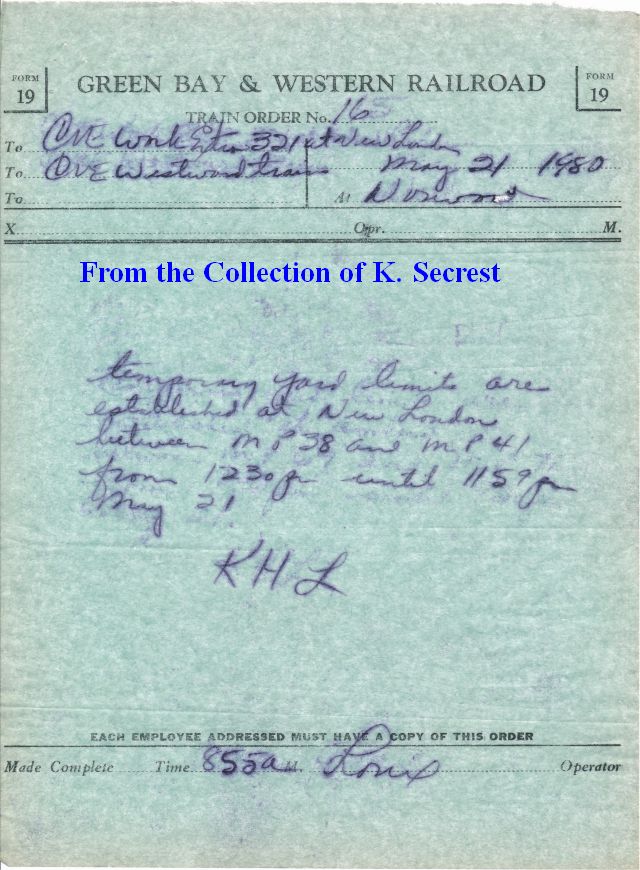 FORM 19
GREEN BAY & WESTERN RAILROAD
FORM 19
TRAIN ORDER No. 16
To C&E Work Extra 321 at New London
To C&E Westward trains May 21 1980
To At Norwood
X Opr. M.
From the Collection of K. Secrest
temporary yard limits are
established at New London
between MP 38 and MP 41
from 1230 pm until 1159 pm
May 21
KHL
EACH EMPLOYEE ADDRESSED MUST HAVE A COPY OF THIS ORDER
Made Complete Time 855a M. Operator